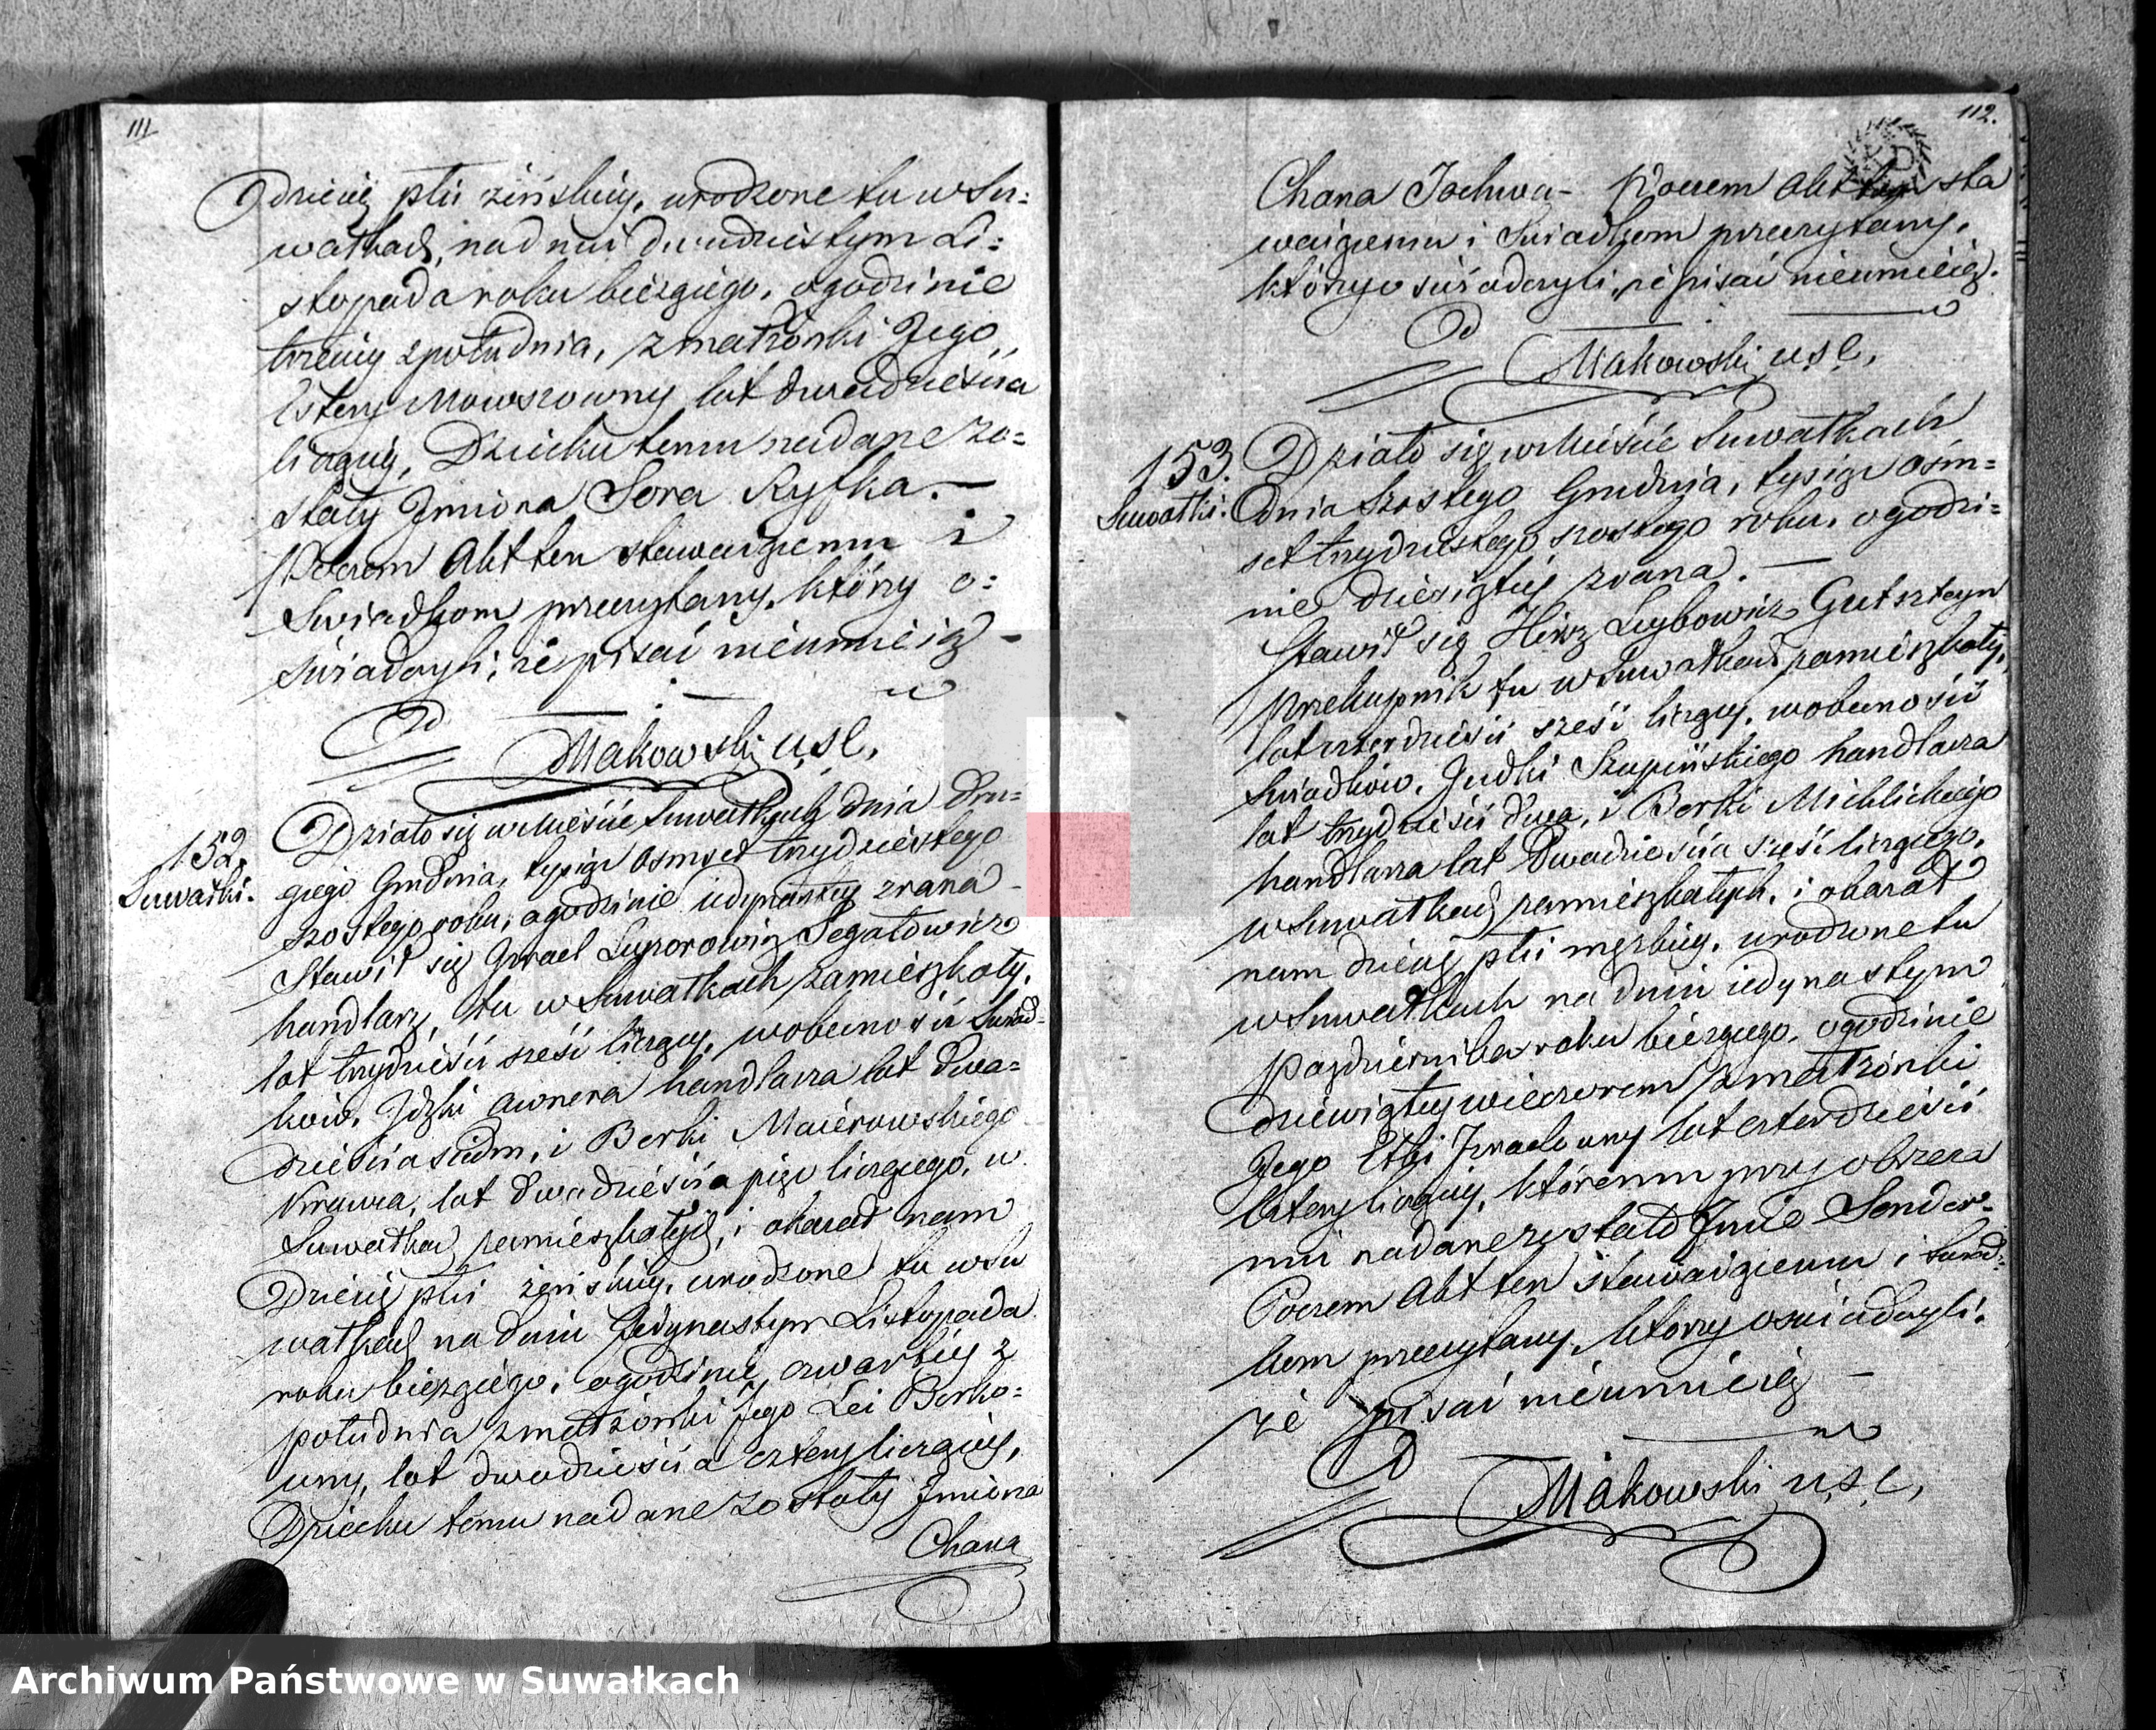 111
Dziecię płci żeńskiey, urodzone tu w Su=
wałkach, na dniu dwudziestym Li=
stopada roku bieżącego, o godzinie
trzeciey z południa, z małżonki Jego,
Estery Mowszowny lat dwadzieścia
liczącey, Dziecku temu nadane zo=
stały Jmiona Sora Ryfka. —
Poczem Akt ten stawaiącemu i
Swiadkom przeczytany, który o=
świadczyli, że pisać nieumieią —
Makowski u.s.c.
152.
Suwałki.
Działo się w Mieście Suwałkach dnia dru=
giego Grudnia, tysiąc ośmset trzydziestego
szostego roku, o godzinie iedynastey zrana —
Stawił się Izrael Segałowicz
handlarz, tu w Suwałkach zamieszkały,
lat trzydzieści sześć liczący, w obecności Swiad=
kow, Jdzki handlarza lat dwa=
dzieścia siedm, i Berki Maierowskiego
Krawca, lat dwadzieścia pięć liczącego, w
Suwałkach zamieszkałych, i okazał nam
Dziecię płci żeńskiey, urodzone tu w Su
wałkach na dniu Jedynastym Listopada
roku bieżącego, o godzinie czwartey z
południa z małżonki Jego Lei Berko=
wny, lat dwadzieścia cztery liczącey,
Dziecku temu nadane zostały Jmiona
Chana
112.
Chana Jochwa — Poczem Akt ten sta
waiącemu i Swiadkom przeczytany,
którzy oświadczyli, że pisać nieumieią.
Makowski u.s.c.
153.
Suwałki.
Działo się w Mieście Suwałkach
dnia szostego Grudnia, tysiąc ośm=
set trzydziestego szostego roku, o godzi=
nie dziesiątey zrana. —
Stawił się Hirsz Leybowicz Gutszteyn
przekupnik tu w Suwałkach zamieszkały,
lat czterdzieści sześć liczący, w obecności
Swiadków, Judki Szupińskiego handlarza
lat trzydzieści dwa, i Berki Michlickiego
handlarza lat dwadzieścia sześć liczącego,
w Suwałkach zamieszkałych, i okazał
nam dziecię płci męzkiey, urodzone tu
w Suwałkach na dniu iedynastym
Pazdziernika roku bieżącego, o godzinie
dziewiątey wieczorem z małżonki
Jego Etki Izraelowny lat czterdzieści
cztery liczącey, któremu przy obrzeza
niu nadane zostało Jmie Sender.
Poczem Akt ten stawaiącemu i Swiad=
kom przeczytany, którzy oswiadczyli,
że pisać nieumieią —
Makowski u.s.c.
Archiwum Państwowe w Suwałkach